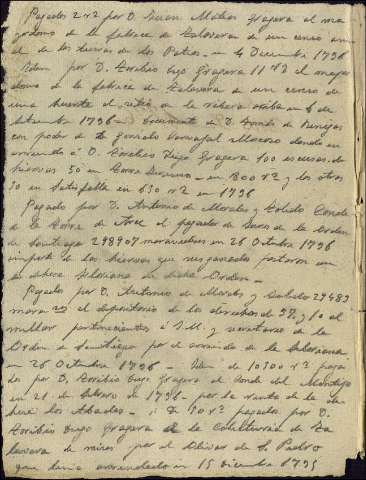 Pagados 272 por D. Juan Mateo Gragera al ma
yordomo de la fabrica de Talavera de un censo anu
al de las tierras de los Patios - en 4 Diciembre 1796
Idem por D. Toribio Lugo Gragera 11 rs al mayor
domo de la fabrica de Talavera de un censo de
una huerta al sitio de la ribera arriba en 6 de
Setiembre 1796 - Documento de D.
con poder de D. Gonzalo Carvajal Moreno dando en
arriendo á D. Toribio Lugo Gragera 100 escusas de
hierros 50 en Torre - en 800 rs y los otros
50 en en 650 rs en 1796
Pagado por D. Antonio de Morales y Toledo Conde
de la Torre de Arce al pagador de Juros de la Orden
de Santiago 298907 maravedises en 26 Octubre 1796
importe de las hierras que sus ganados pastaron en
la dehesa de dicha Orden -
Pagado por D. Antonio de Morales y Toledo 29483
mara al depositario de los derechos de 2% y 10 al
millar pertenecientes á S.M. y secretario de la
Orden de Santiago por el arriendo de la
en 26 Octubre 1796 - Idem de 10700 rs paga
dos por D. Toribio Lugo Gragera al Conde del Montijo
en 21 de Febrero de 1796 - por la renta de la de
hesa los Abades - i D 10 rs pagados por D.
Toribio Lugo Gragera á la Colecturia de Ta
lavera de misas por el Olivar de S. Pedro
que tenia arrendado en 15 Diciembre 1795